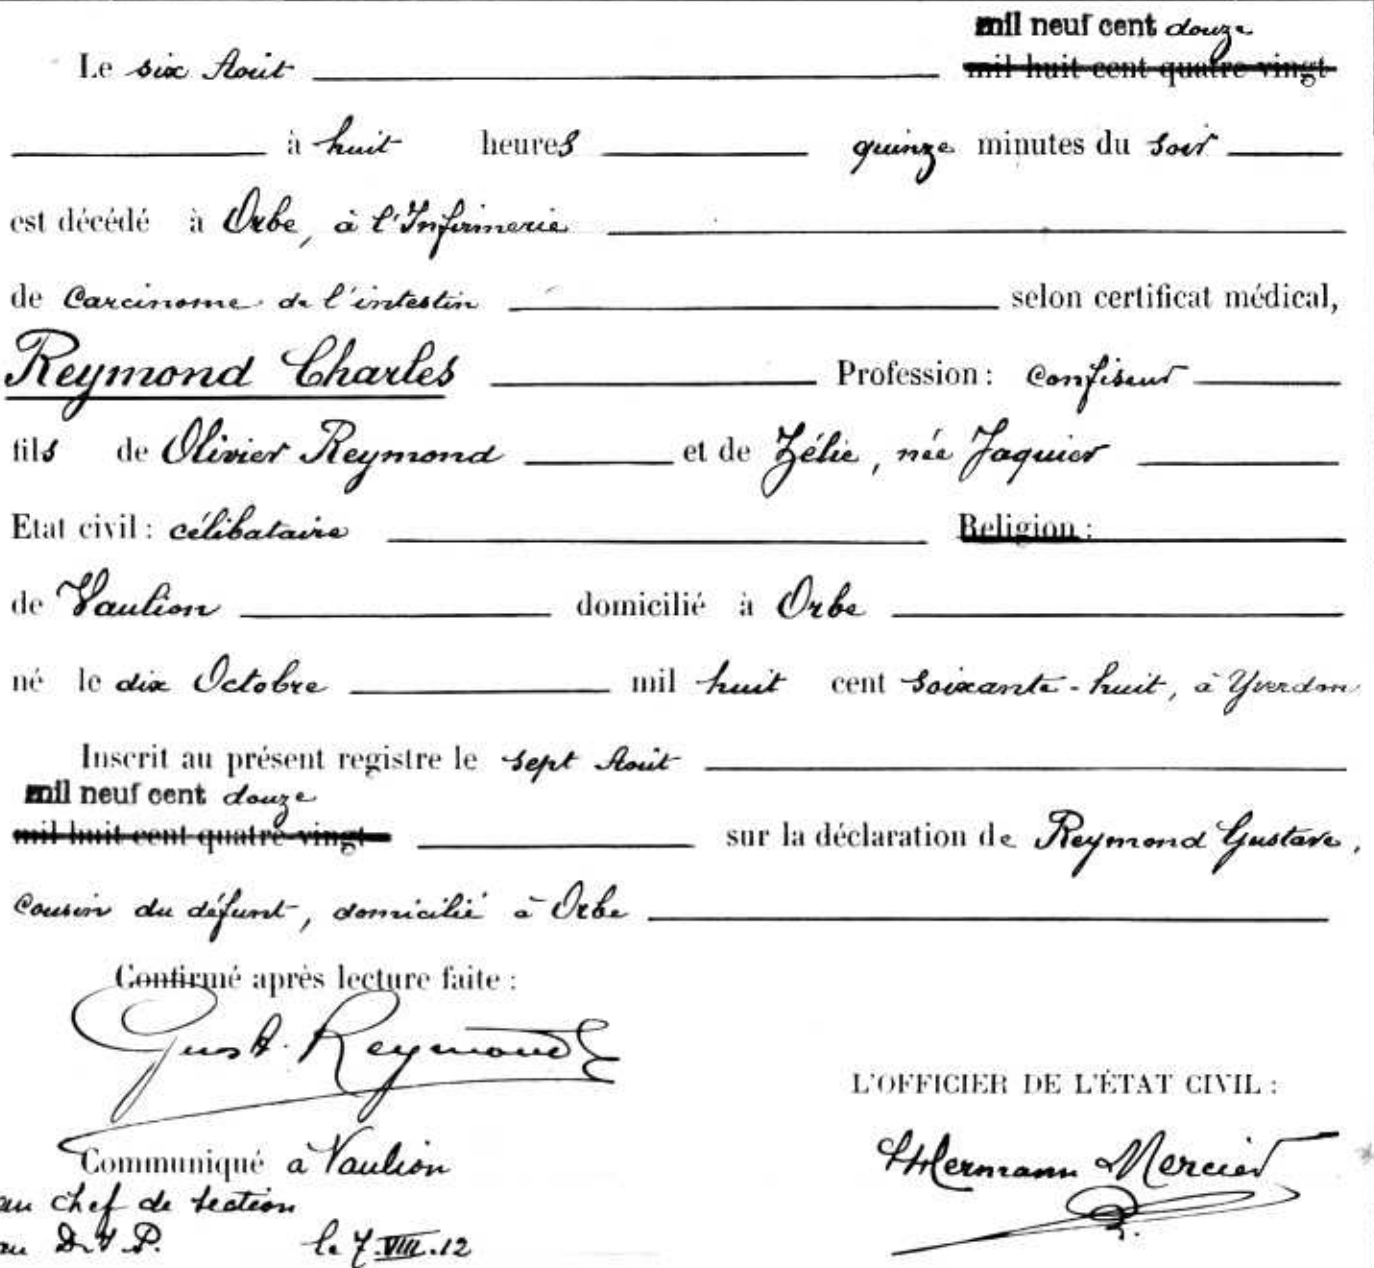 mil neuf cent douze
Le six Août mil huit cent quatre-vingt
à huit heures quinze minutes du soir
est décédé à Orbe, à l'Infirmerie
de Carcinome de l'intestin selon certificat médical,
Reymond Charles Profession : confiseur
fils de Olivier Reymond et de Zélie, née Jaquier
Etat civil : célibataire Religion :
de Vaulion domicilié à Orbe
né le dix Octobre mil huit cent soixante-huit, à Yverdon
Inscrit au présent registre le sept Août
mil neuf cent douze
mil huit cent quatre-vingt sur la déclaration de Reymond Gustave,
cousin du défunt, domicilié à Orbe
Confirmé après lecture faite :
Gust. Reymond
L'OFFICIER DE L'ÉTAT CIVIL :
Communiqué à Vaulion
Hermann Mercier
au chef de section
au D. P. le 7.VIII.12